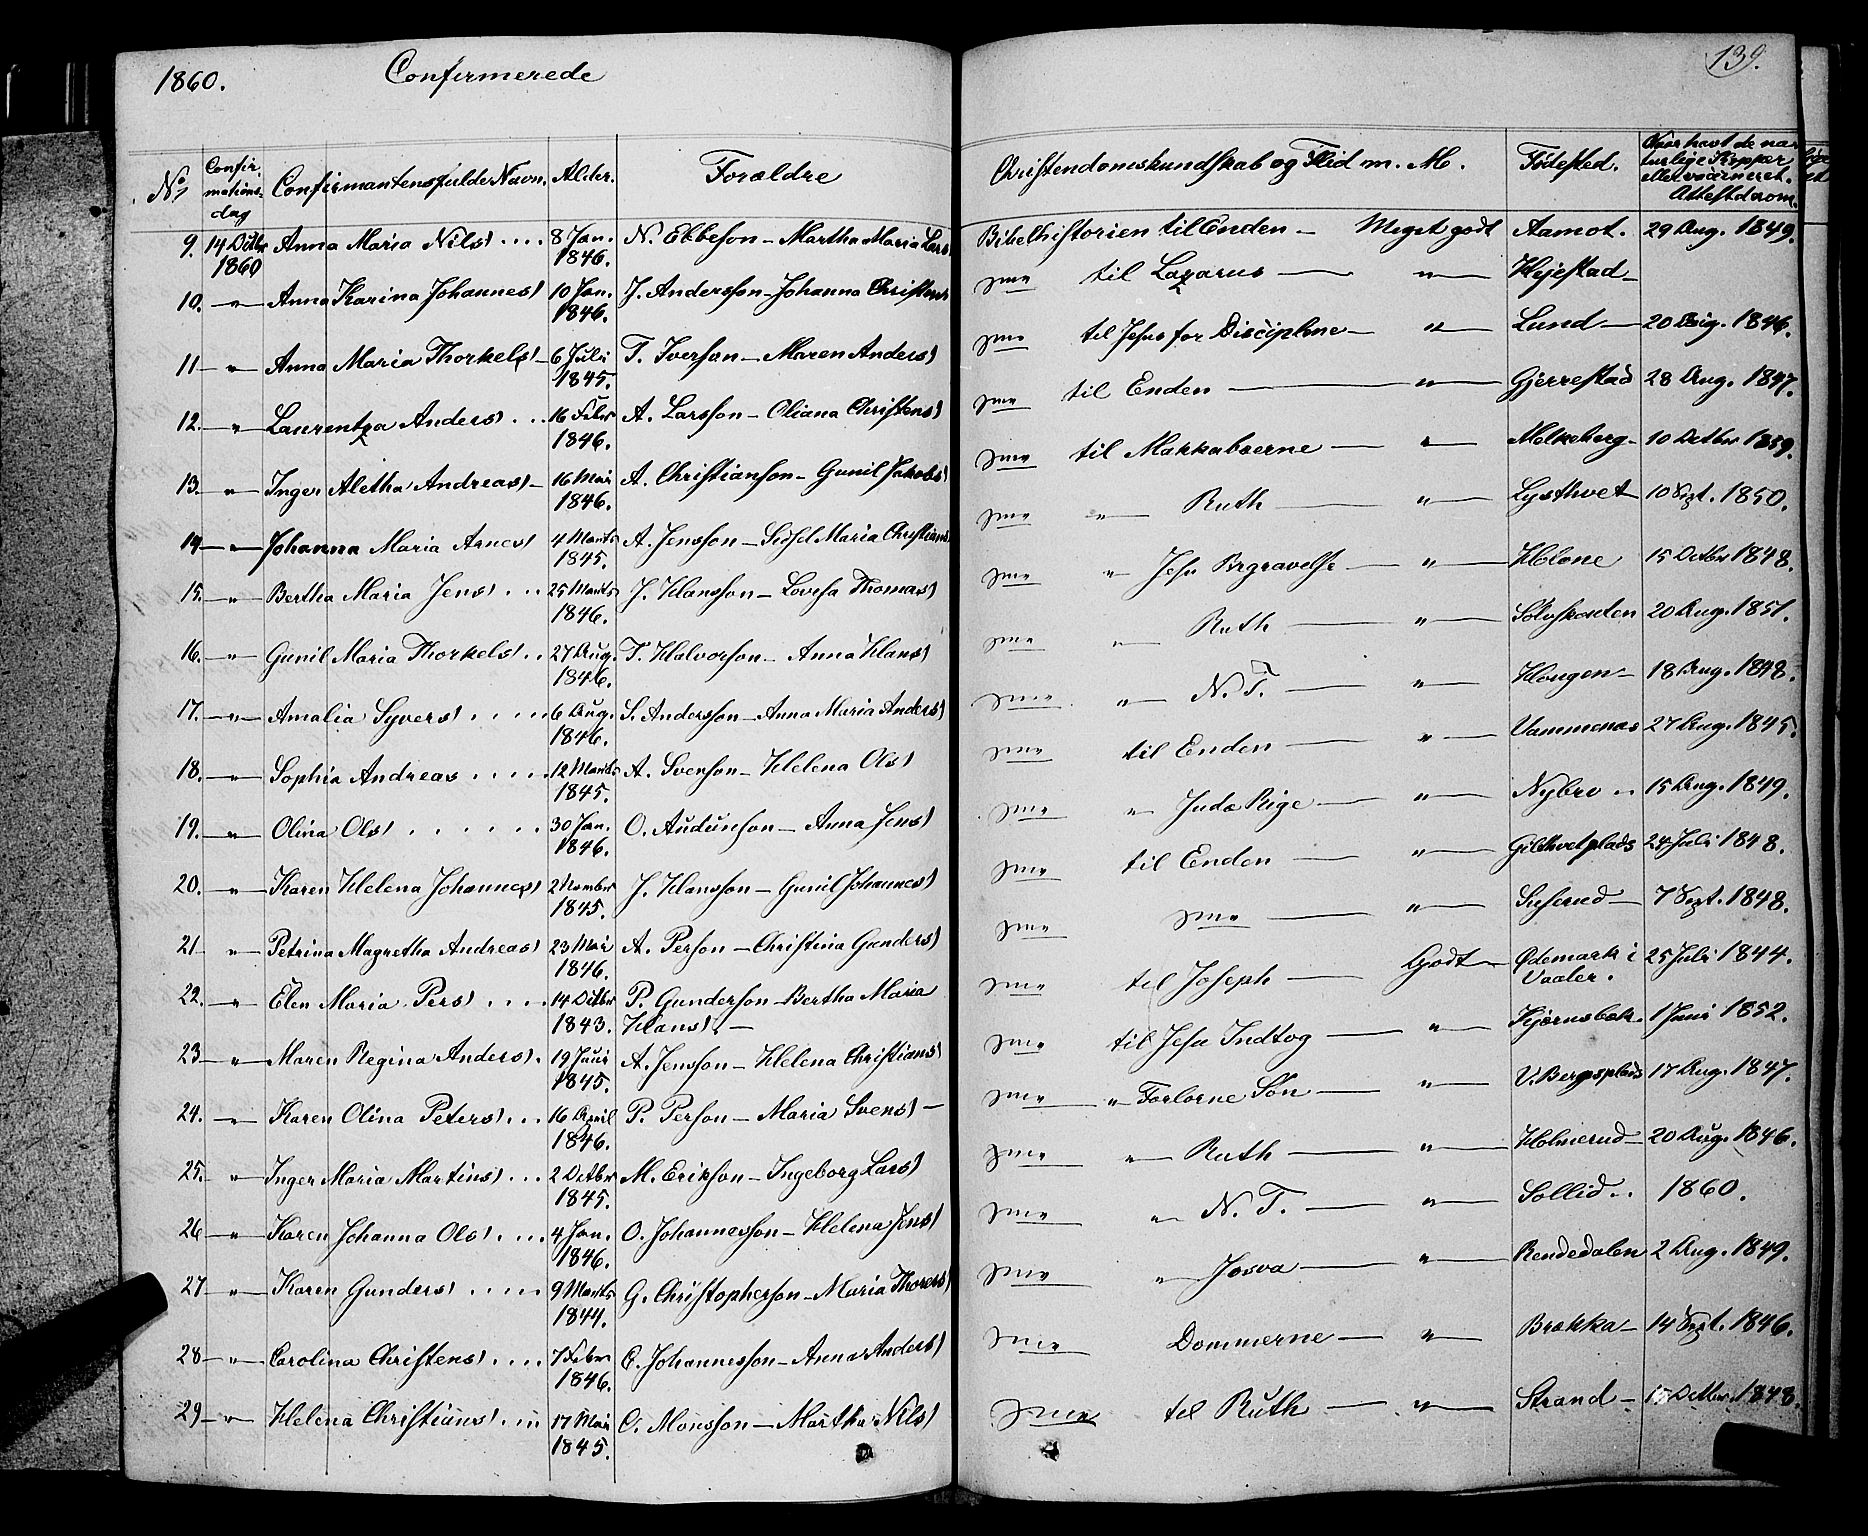 1860. Confirmerede
139.
No Confirmationsdag Confirmantens fulde Navn. Alder. Forældre Christendomskundskab og Flid m. M. Fødested. Naar havt de naturlige Kopper eller vaccineret. Attest derom.
9. 14 Octbr 1860 Anna Maria Nilsd .... 8 Jan. 1846. N. Ebbeson – Martha Maria Larsd Bibelhistorien til Enden – Meget godt Aamot. 29 Aug. 1849.
10. – " – Anna Karina Johannesd 10 Jan. 1846. J. Andersson – Johanna Christensd til Lazarus – " – Hejestad –
11 – " – Anna Maria Thorkelsd – 6 Juli 1845. T. Iverson – Maren Andersd til Jesus for Disciplene – " – Lund – 20 Aug. 1846.
12. – " – Laurentza Andersd ... 16 Febr 1846. A. Larsson – Oliana Christensd til Enden – " – Gjerrestad 28 Aug. 1847.
13. – " – Inger Aletha Andreasd – 16 Mai 1846. A. Christianson – Gunil Jakobsd til Makkabæerne – " – Melkeberg – 10 Octbr 1859.
14 – " – Johanna Maria Arnesd 4 Marts 1845. A. Jensson – Sidsel Maria Christiansd " Ruth – " – Lysthvet 10 Sept. 1850.
15. – " – Bertha Maria Jensd ... 25 Marts 1846. J. Hansson – Lovisa Thomasd " – Jesu Begravelse – " – Holone 15 Octbr 1848.
16. – " – Gunil Maria Thorkelsd .. 27 Aug. 1846. T. Halvorson – Anna Hansd " – Ruth – " – 20 Aug. 1851.
17. – " – Amalia Syversd .... 6 Aug. 1846. S. Andersson – Anna Maria Andersd " – N. T. – " – Hougen – 18 Aug. 1848.
18. – " – Sophia Andreasd .... 12 Marts 1845. A. Svenson – Helena Olsd til Enden – " – Vammenæs 27 Aug. 1845.
19. – " – Olina Olsd ...... 30 Jan. 1846. O. Audunson – Anna Jensd " – Juda Rige – " – Nybro .. 15 Aug. 1849.
20. – " – Karen Helena Johannesd 2 Novmbr 1845. J. Hansson – Gunil Johannesd til Enden – " – Gilthvetplads 24 Juli 1848.
21 – " – Petrina Magretha Andreasd 23 Mai 1846. A. Person – Christina Gundersd – " – 7 Sept. 1848.
22. – " – Elen Maria Persd .... 14 Octbr 1843. P. Gunderson – Bertha Maria Hansd. – til Joseph – Godt – Ødemark i Vaaler. 25 Juli 1844.
23 – " – Maren Regina Andersd. 19 Juni 1845. A. Jensson – Helena Christiansd til Jesu Indtog – " – Kjærnsbæk. 1 Juni 1852.
24. – " – Karen Olina Petersd ... 16 April 1846. P. Person – Maria Svensd – " Forlorne Søn – " – V. Bergsplads 17 Aug. 1847.
25. – " – Inger Maria Martinsd ... 2 Octbr 1845. M. Erikson – Ingeborg Larsd " – Ruth – " – Holmerud – 20 Aug. 1846.
26 – " – Karen Johanna Olsd .... 4 Jan. 1846. O. Johannesson – Helena Jensd " – N. T. – " – Sollid .. 1860.
27 – " – Karen Gundersd ..... 9 Marts 1844. G. Christopherson – Maria Thoresd " – Josva – " – Rendedalen 2 Aug. 1849.
28 – " – Carolina Christensd .... 7 Febr 1846. C. Johannesson – Anna Andersd Dommerne – " – Brækka – 14 Sept. 1846.
29 – " – Helena Christiansd .... 17 Mai 1845. C. Monsson – Martha Nilsd til Ruth – " – Strand – 15 Octbr. 1848.